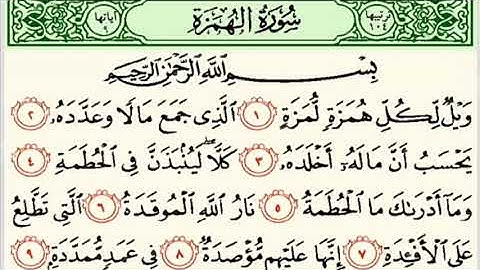 ترتيبها ١٠٤ سُورَةُ الْهُمَزَةِ آياتها ٩
بِسْمِ اللَّهِ الرَّحْمَٰنِ الرَّحِيمِ
وَيْلٌ لِّكُلِّ هُمَزَةٍ لُّمَزَةٍ ١ الَّذِي جَمَعَ مَالًا وَعَدَّدَهُۥ ٢
يَحْسَبُ أَنَّ مَالَهُۥٓ أَخْلَدَهُۥ ٣ كَلَّا ۖ لَيُنۢبَذَنَّ فِي الْحُطَمَةِ ٤
وَمَآ أَدْرَىٰكَ مَا الْحُطَمَةُ ٥ نَارُ اللَّهِ الْمُوقَدَةُ ٦ الَّتِي تَطَّلِعُ
عَلَى الْأَفْـِٔدَةِ ٧ إِنَّهَا عَلَيْهِم مُّؤْصَدَةٌ ٨ فِي عَمَدٍ مُّمَدَّدَةٍۭ ٩